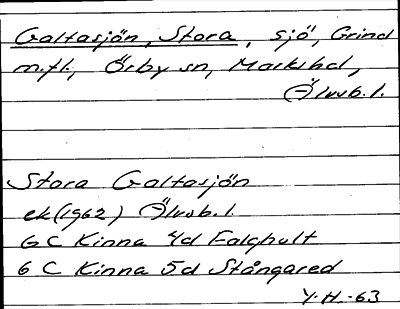 Galtasjön, Stora, sjö, Grind
m.fl., Örby sn, Marks hd,
Älvsb. l.
Stora Galtasjön
ek (1962) Älvsb. l.
6 C Kinna 4d Falghult
6 C Kinna 5d Stångared
Y.H.-63